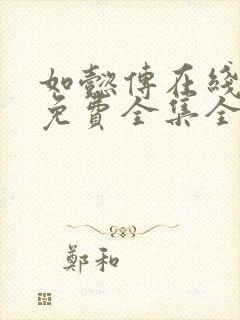 如懿傳在綫
免費全集全
鄭和